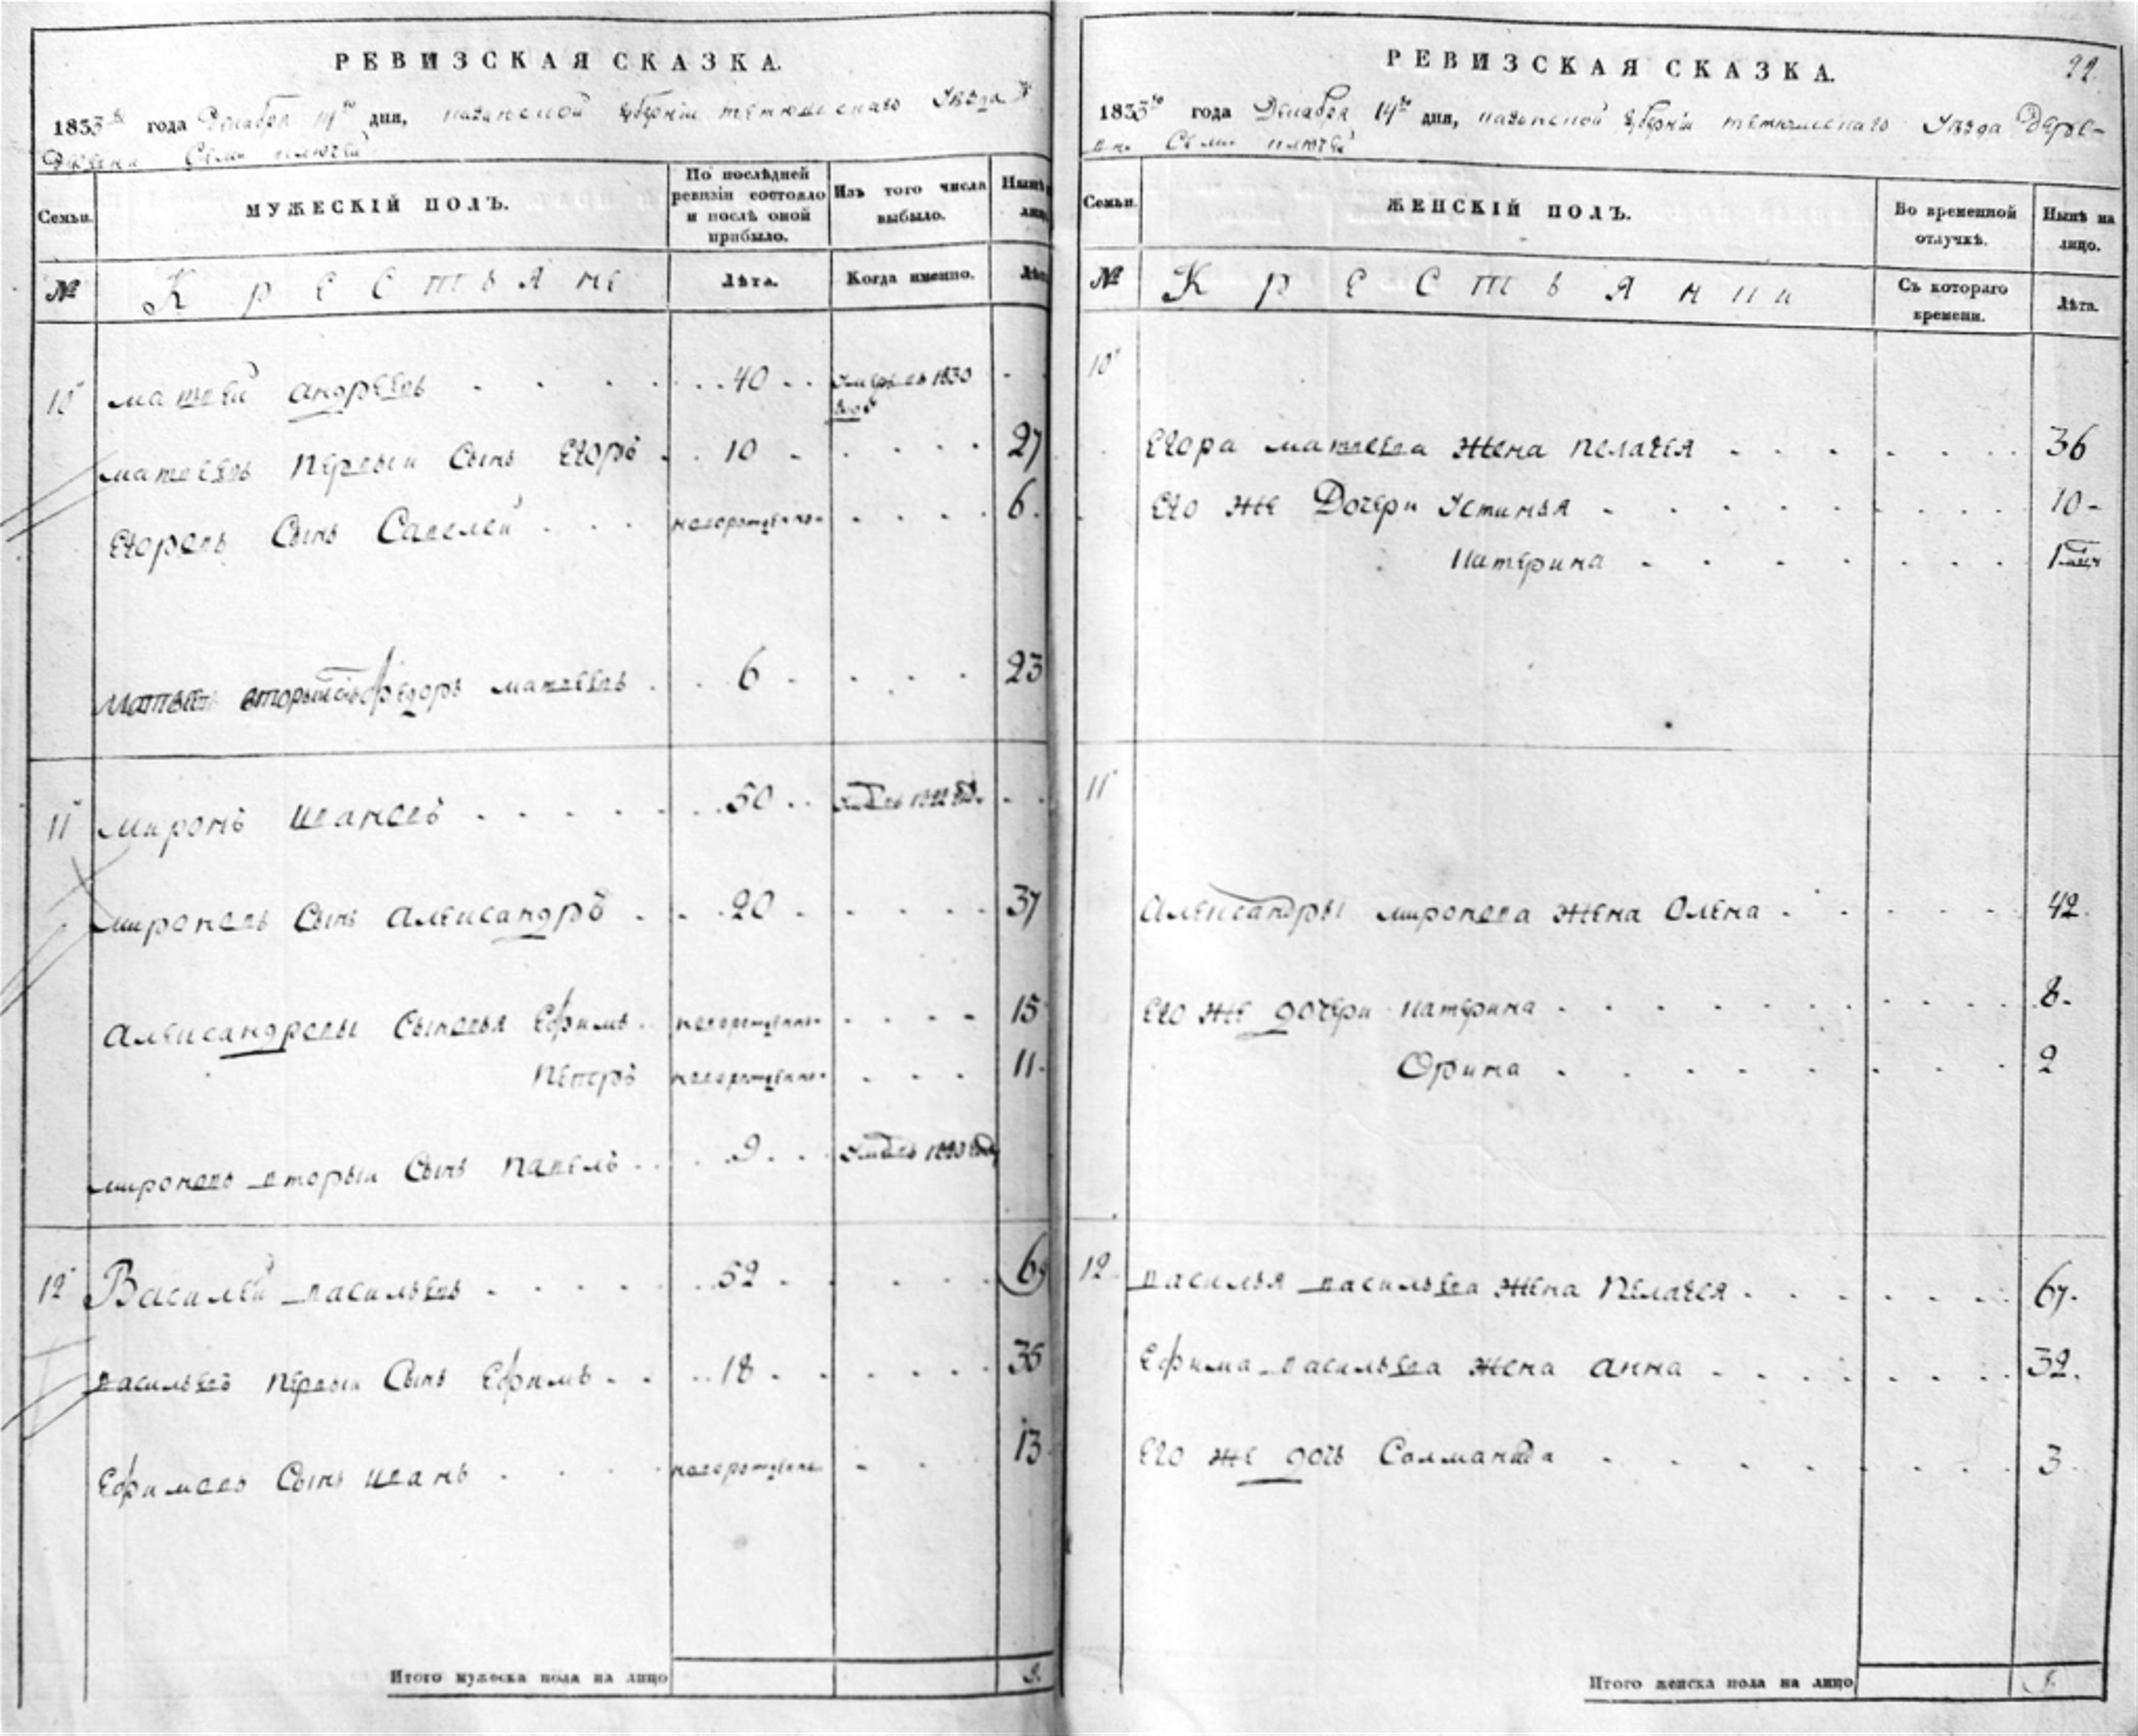 РЕВИЗСКАЯ СКАЗКА.
1833го года Декабря 14го дня, казанской губерніи тетюшскаго уѣзда
Деревни Семи ключей
Семьи. МУЖЕСКІЙ ПОЛЪ. По послѣдней ревизіи состояло и послѣ оной прибыло. Изъ того числа выбыло. Нынѣ на лицо
№ Крестьяне Лѣта. Когда именно. Лѣта
10 матвей андреевъ 40 умеръ въ 1830
году
матвеевъ первый сынъ Егоръ 10 27
Егоровъ сынъ Савелей новорожденно 6.
вторый сынъ Федоръ матвеевъ 6 23
11 миронъ ивановъ 50
мироновъ сынъ александръ 20 37
александровы сыновья Ефимъ новорожденно 15
петръ новорожденно 11.
мироновъ вторый сынъ павелъ 9
12 Василей васильевъ 52 69
васильевъ первый сынъ Ефимъ 18 35
Ефимовъ сынъ иванъ новорожденно 13
Итого мужеска пола на лицо 9.
РЕВИЗСКАЯ СКАЗКА. 22.
1833го года Декабря 14го дня, казанской губерніи тетюшскаго уѣзда Дерев-
ни Семи ключей
Семьи. ЖЕНСКІЙ ПОЛЪ. Во временной отлучкѣ. Нынѣ на лицо.
№ Крестьянки Съ котораго времени. Лѣта.
10
Егора матвеева жена пелагея 36
Его же Дочери устинья 10
катерина 1
11
александры миронова жена олена 42.
Его же дочери катерина 8.
Орина 2
12 василья васильева жена пелагея 67.
Ефима васильева жена анна 32.
Его же дочь Соломанида 3
Итого женска пола на лицо